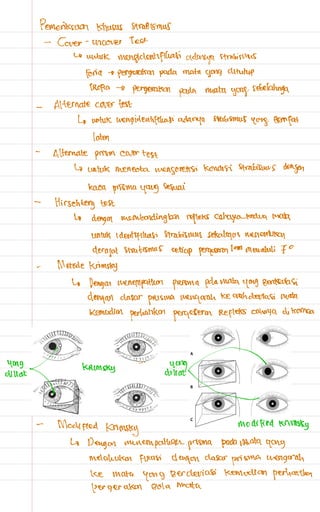 Pemeriksaan Khusus Strabismus
- Cover-uncover Test
↳ untuk mengidentifikasi adanya strabismus
foria → pergerakan pada mata yang ditutup
tropia → pergerakan pada mata yang sebelahnya
- Alternate cover test
↳ untuk mengidentifikasi adanya strabismus yang bersifat
laten
- Alternate prism cover test
↳ untuk menetra kondisi strabismus dengan
kaca prisma yang sesuai
- Hirschberg test
↳ dengan membandingkan refleks cahaya kedua mata
untuk identifikasi strabismus sekaligus menentukan
derajat strabismus setiap pergeseran 1mm mewakili 7°
- Metode Krimsky
↳ Dengan menempatkan prisma pda mata yang berdeviasi
dengan dasar prisma mengarah ke arah deviasi mata
kemudian perhatikan pergeseran Refleks cahaya di kornea
yang dilihat
KRIMSKY
yang dilihat
A
B
C
modified krimsky
- Modified Krimsky
↳ Dengan menempatkan prisma pada mata yang
melakukan fiksasi dengan dasar prisma mengarah
ke mata yang berdeviasi kemudian perhatikan
pergerakan bola mata